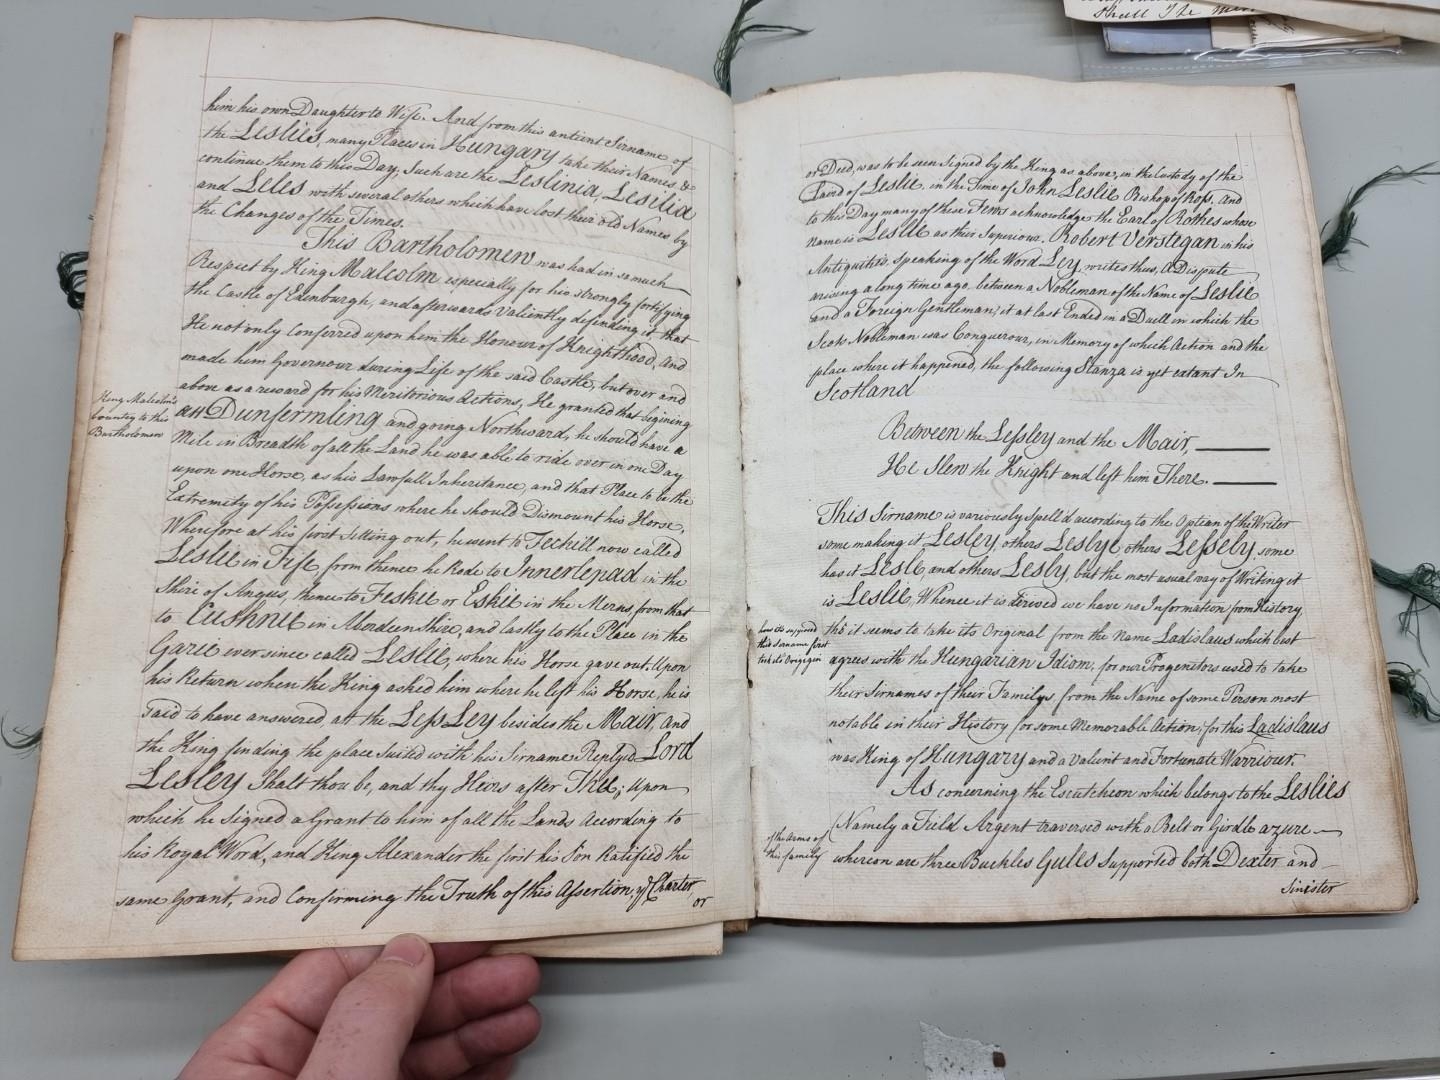 him his own Daughter to Wife. And from this antient Sirname of
the Leslies, many Places in Hungary take their Names, &
continue them to this Day, Such are the Leslinia, Leslia
and Leles with several others which have lost their old Names by
the Changes of the Times.
This Bartholomew was had in so much
Respect by King Malcolm especially for his strongly fortifying
the Castle of Edinburgh, and afterwards Valiently defending it, that
He not only Conferred upon him the Honour of Knighthood, And
made him Governour during Life of the said Castle, but over and
above as a reward for his Meritorious Actions, He granted that begining
att Dunfermling and going Northward, he should have a
Mile in Breadth of all the Land he was able to ride over in one Day
upon one Horse, as his Lawfull Inheritance, and that Place to be the
Extremity of his Possessions where he should Dismount his Horse.
Wherefore at his first Setting out, he went to Fechill now called
Leslie in Fife from thence he Rode to Innerlepad in the
Shire of Angus, thence to Feskie or Eskie in the Merns, from that
to Cushnie in Aberdeen Shire, and lastly to the Place in the
Garie ever since called Leslie, where his Horse gave out. Upon
his Return when the King asked him where he left his Horse, he is
said to have answered att the Less Ley besides the Mair, and
the King finding the place Suited with his Sirname Replyed Lord
Lesley Shalt thou be, and thy Heirs after Thee; Upon
which he Signed a Grant to him of all the Lands According to
his Royal Word, and King Alexander the first his Son Ratified the
same Grant, and Confirming the Truth of this Assertion, ye Charter,
or
King Malcolm's
bounty to this
Bartholomew
or Deed, was to be seen Signed by the King as above, in the Custody of the
Laird of Leslie, in the Time of John Leslie Bishop of Ross, And
to this Day many of these Fews acknowledge the Earl of Rothes whose
Name is Leslie as their Superiour. Robert Verstegan in his
Antiquities Speaking of the Word Ley, writes thus, A Dispute
arising a long time ago, between a Nobleman of the Name of Leslie
and a Foreign Gentleman, it at last Ended in a Duell in which the
Scots Nobleman was Conquerour, in Memory of which Action and the
place where it happened, the following Stanza is yet extant In
Scotland
Between the Lessley and the Mair,
He Slew the Knight and left him There.
This Sirname is variously Spell'd according to the Option of the Writer
some making it Lesley, others Leslye others Lessely, some
has it Lesle, and others Lesly, but the most usual way of Writing it
is Leslie, Whence it is Derived we have no Information from History
tho' it seems to take its Original from the Name Ladislaus which but
agrees with the Hungarian Idiom, for our Progenitors used to take
their Sirnames of their Familys from the Name of some Person most
notable in their History for some Memorable Action, for this Ladislaus
was King of Hungary and a valiant and Fortunate Warriour.
how its supposed
this Sirname first
took its Origin
As concerning the Escutcheon which belongs to the Leslies
(Namely a Field Argent traversed with a Belt or Girdle azure
whereon are three Buckles Gules Supported both Dexter and
Sinister
of the Arms of
this family